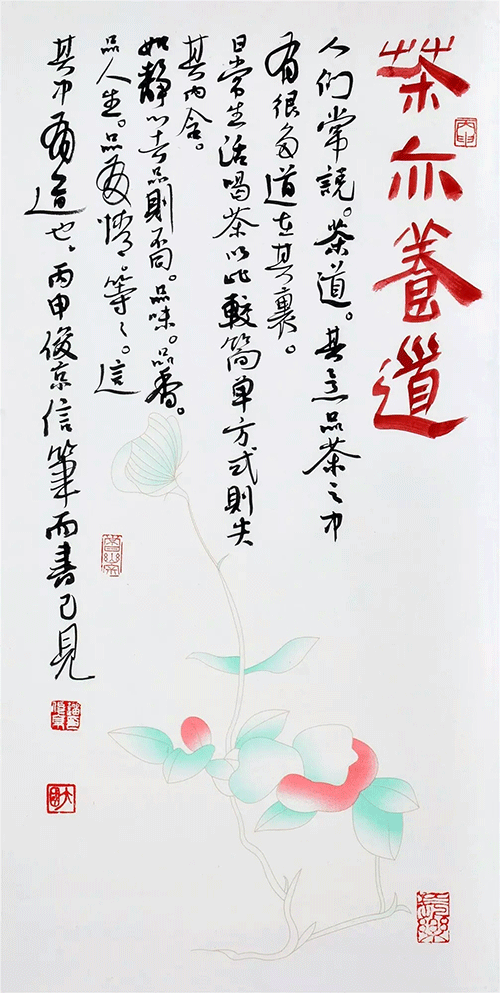 茶亦養道
丙申
人们常說。茶道。其意品茶之中
有很多道在其裏。
日常生活喝茶以比較简单方式則失
其内含。
如靜心去品則不同。品味。品香。
品人生。品友情。等々。這
其中有道也。丙申俊京信筆而書己見